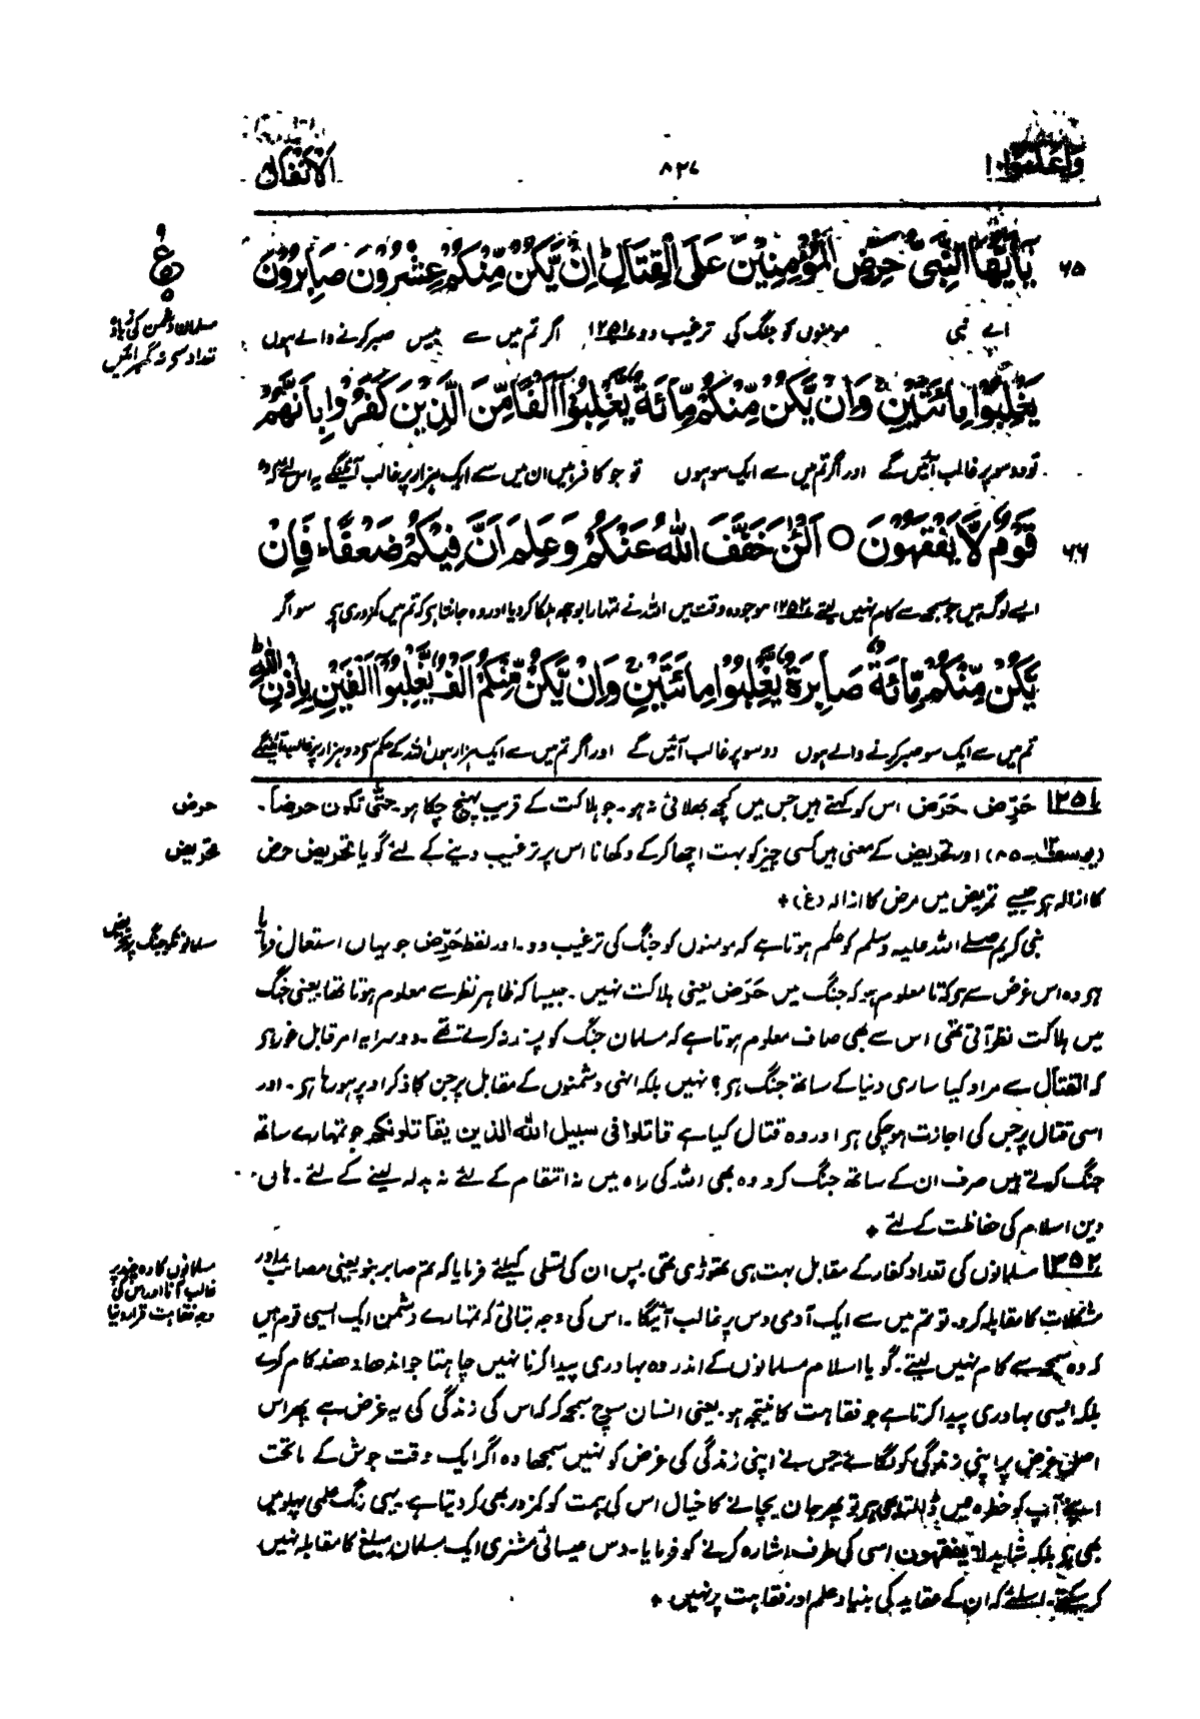 واعلموا
۸۲۷
الانفال
۶۵ يٰۤاَيُّهَا النَّبِىُّ حَرِّضِ الْمُؤْمِنِيْنَ عَلَى الْقِتَالِ ؕ اِنْ يَّكُنْ مِّنْكُمْ عِشْرُوْنَ صَابِرُوْنَ
ع
مسلمان دشمن کی زیادہ
تعداد سے نہ گھبرائیں
اے نبی مومنوں کو جنگ کی ترغیب دو ۱۲۵۱ اگر تم میں سے بیس صبر کرنے والے ہوں
يَغْلِبُوْا مِائَتَيْنِ ۚ وَاِنْ يَّكُنْ مِّنْكُمْ مِّائَةٌ يَّغْلِبُوْۤا اَلْفًا مِّنَ الَّذِيْنَ كَفَرُوْا بِاَنَّهُمْ
تو دو سو پر غالب آئیں گے اور اگر تم میں سے ایک سو ہوں تو جو کافر ہیں ان میں سے ایک ہزار پر غالب آئینگے یہ اس لئے کہ وہ
۶۶ قَوْمٌ لَّا يَفْقَهُوْنَ ○ اَلْـٰٔنَ خَفَّفَ اللّٰهُ عَنْكُمْ وَعَلِمَ اَنَّ فِيْكُمْ ضَعْفًا ؕ فَاِنْ
ایسے لوگ ہیں جو سمجھ سے کام نہیں لیتے ۱۲۵۲ موجودہ وقت میں اللہ نے تمہارا بوجھ ہلکا کر دیا اور وہ جانتا ہے کہ تم میں کمزوری ہے سو اگر
يَّكُنْ مِّنْكُمْ مِّائَةٌ صَابِرَةٌ يَّغْلِبُوْا مِائَتَيْنِ ۚ وَاِنْ يَّكُنْ مِّنْكُمْ اَلْفٌ يَّغْلِبُوْۤا اَلْفَيْنِ بِاِذْنِ اللّٰهِ ؕ
تم میں سے ایک سو صبر کرنے والے ہوں دو سو پر غالب آئیں گے اور اگر تم میں سے ایک ہزار ہوں اللہ کے حکم سے دو ہزار پر غالب آئینگے
۱۲۵۱ حَرِّض۔ حَرَض اس کو کہتے ہیں جس میں کچھ بھلائی نہ ہو۔ جو ہلاکت کے قریب پہنچ چکا ہو۔ حتّٰی تکون حرضاً۔
حرض
(یوسف۱۲-۸۵) اور تحریض کے معنی ہیں کسی چیز کو بہت اچھا کر کے دکھانا اس پر ترغیب دینے کے لئے گویا تحریض حرض
تحریض
کا ازالہ ہے جیسے تمریض میں مرض کا ازالہ (غ)+
نبی کریم صلے اللہ علیہ وسلم کو حکم ہوتا ہے کہ مومنوں کو جنگ کی ترغیب دو۔ اور لفظ حَرِّض جو یہاں استعمال فرمایا
مسلمانوں کو جنگ پر تحریض
ہے وہ اس غرض سے ہے کہ تا معلوم ہو کہ جنگ میں حَرَض یعنی ہلاکت نہیں۔ جیسا کہ ظاہر نظر سے معلوم ہوتا تھا یعنی جنگ
میں ہلاکت نظر آتی تھی اس سے بھی صاف معلوم ہوتا ہے کہ مسلمان جنگ کو پسند نہ کرتے تھے۔ دوسرا یہ امر قابل غور ہے
کہ القتال سے مراد کیا ساری دنیا کے ساتھ جنگ ہے؟ نہیں بلکہ انہی دشمنوں کے مقابل پر جن کا ذکر اوپر ہو رہا ہے۔ اور
اسی قتال پر جس کی اجازت ہو چکی ہے اور وہ قتال کیا ہے قاتلوا فی سبیل اللہ الذین یقاتلونکم جو تمہارے ساتھ
جنگ کرتے ہیں صرف ان کے ساتھ جنگ کرو وہ بھی اللہ کی راہ میں نہ انتقام کے لئے نہ بدلہ لینے کے لئے۔ ہاں
دین اسلام کی حفاظت کے لئے +
۱۲۵۲ مسلمانوں کی تعداد کفار کے مقابل بہت ہی تھوڑی تھی پس ان کی تسلی کیلئے فرمایا کہ تم صابر بنو یعنی مصائب اور
مسلمانوں کا دہ چند پر
غالب آنا اور اس کی
وجہ فقاہت قرار دینا
مشکلات کا مقابلہ کرو۔ تو تم میں سے ایک آدمی دس پر غالب آئیگا۔ اس کی وجہ بتائی کہ تمہارے دشمن ایک ایسی قوم ہیں
کہ وہ سمجھ سے کام نہیں لیتے۔ گویا اسلام مسلمانوں کے اندر وہ بہادری پیدا کرنا نہیں چاہتا جو اندھا دھند کام کرے
بلکہ ایسی بہادری پیدا کرتا ہے جو فقاہت کا نتیجہ ہو۔ یعنی انسان سوچ سمجھ کر کہ اس کی زندگی کی یہ غرض ہے پھر اس
اصل غرض پر اپنی زندگی کو لگائے جس نے اپنی زندگی کی غرض کو نہیں سمجھا وہ اگر ایک وقت جوش کے ماتحت
اپنے آپ کو خطرہ میں ڈالتا بھی ہے تو پھر جان بچانے کا خیال اس کی ہمت کو کمزور بھی کر دیتا ہے۔ یہی رنگ علمی پہلو میں
بھی ہے بلکہ شاید لا یفقھون اسی کی طرف اشارہ کرنے کو فرمایا۔ دس عیسائی مشنری ایک مسلمان مبلغ کا مقابلہ نہیں
کر سکتے۔ اسلئے کہ ان کے عقاید کی بنیاد علم اور فقاہت پر نہیں +